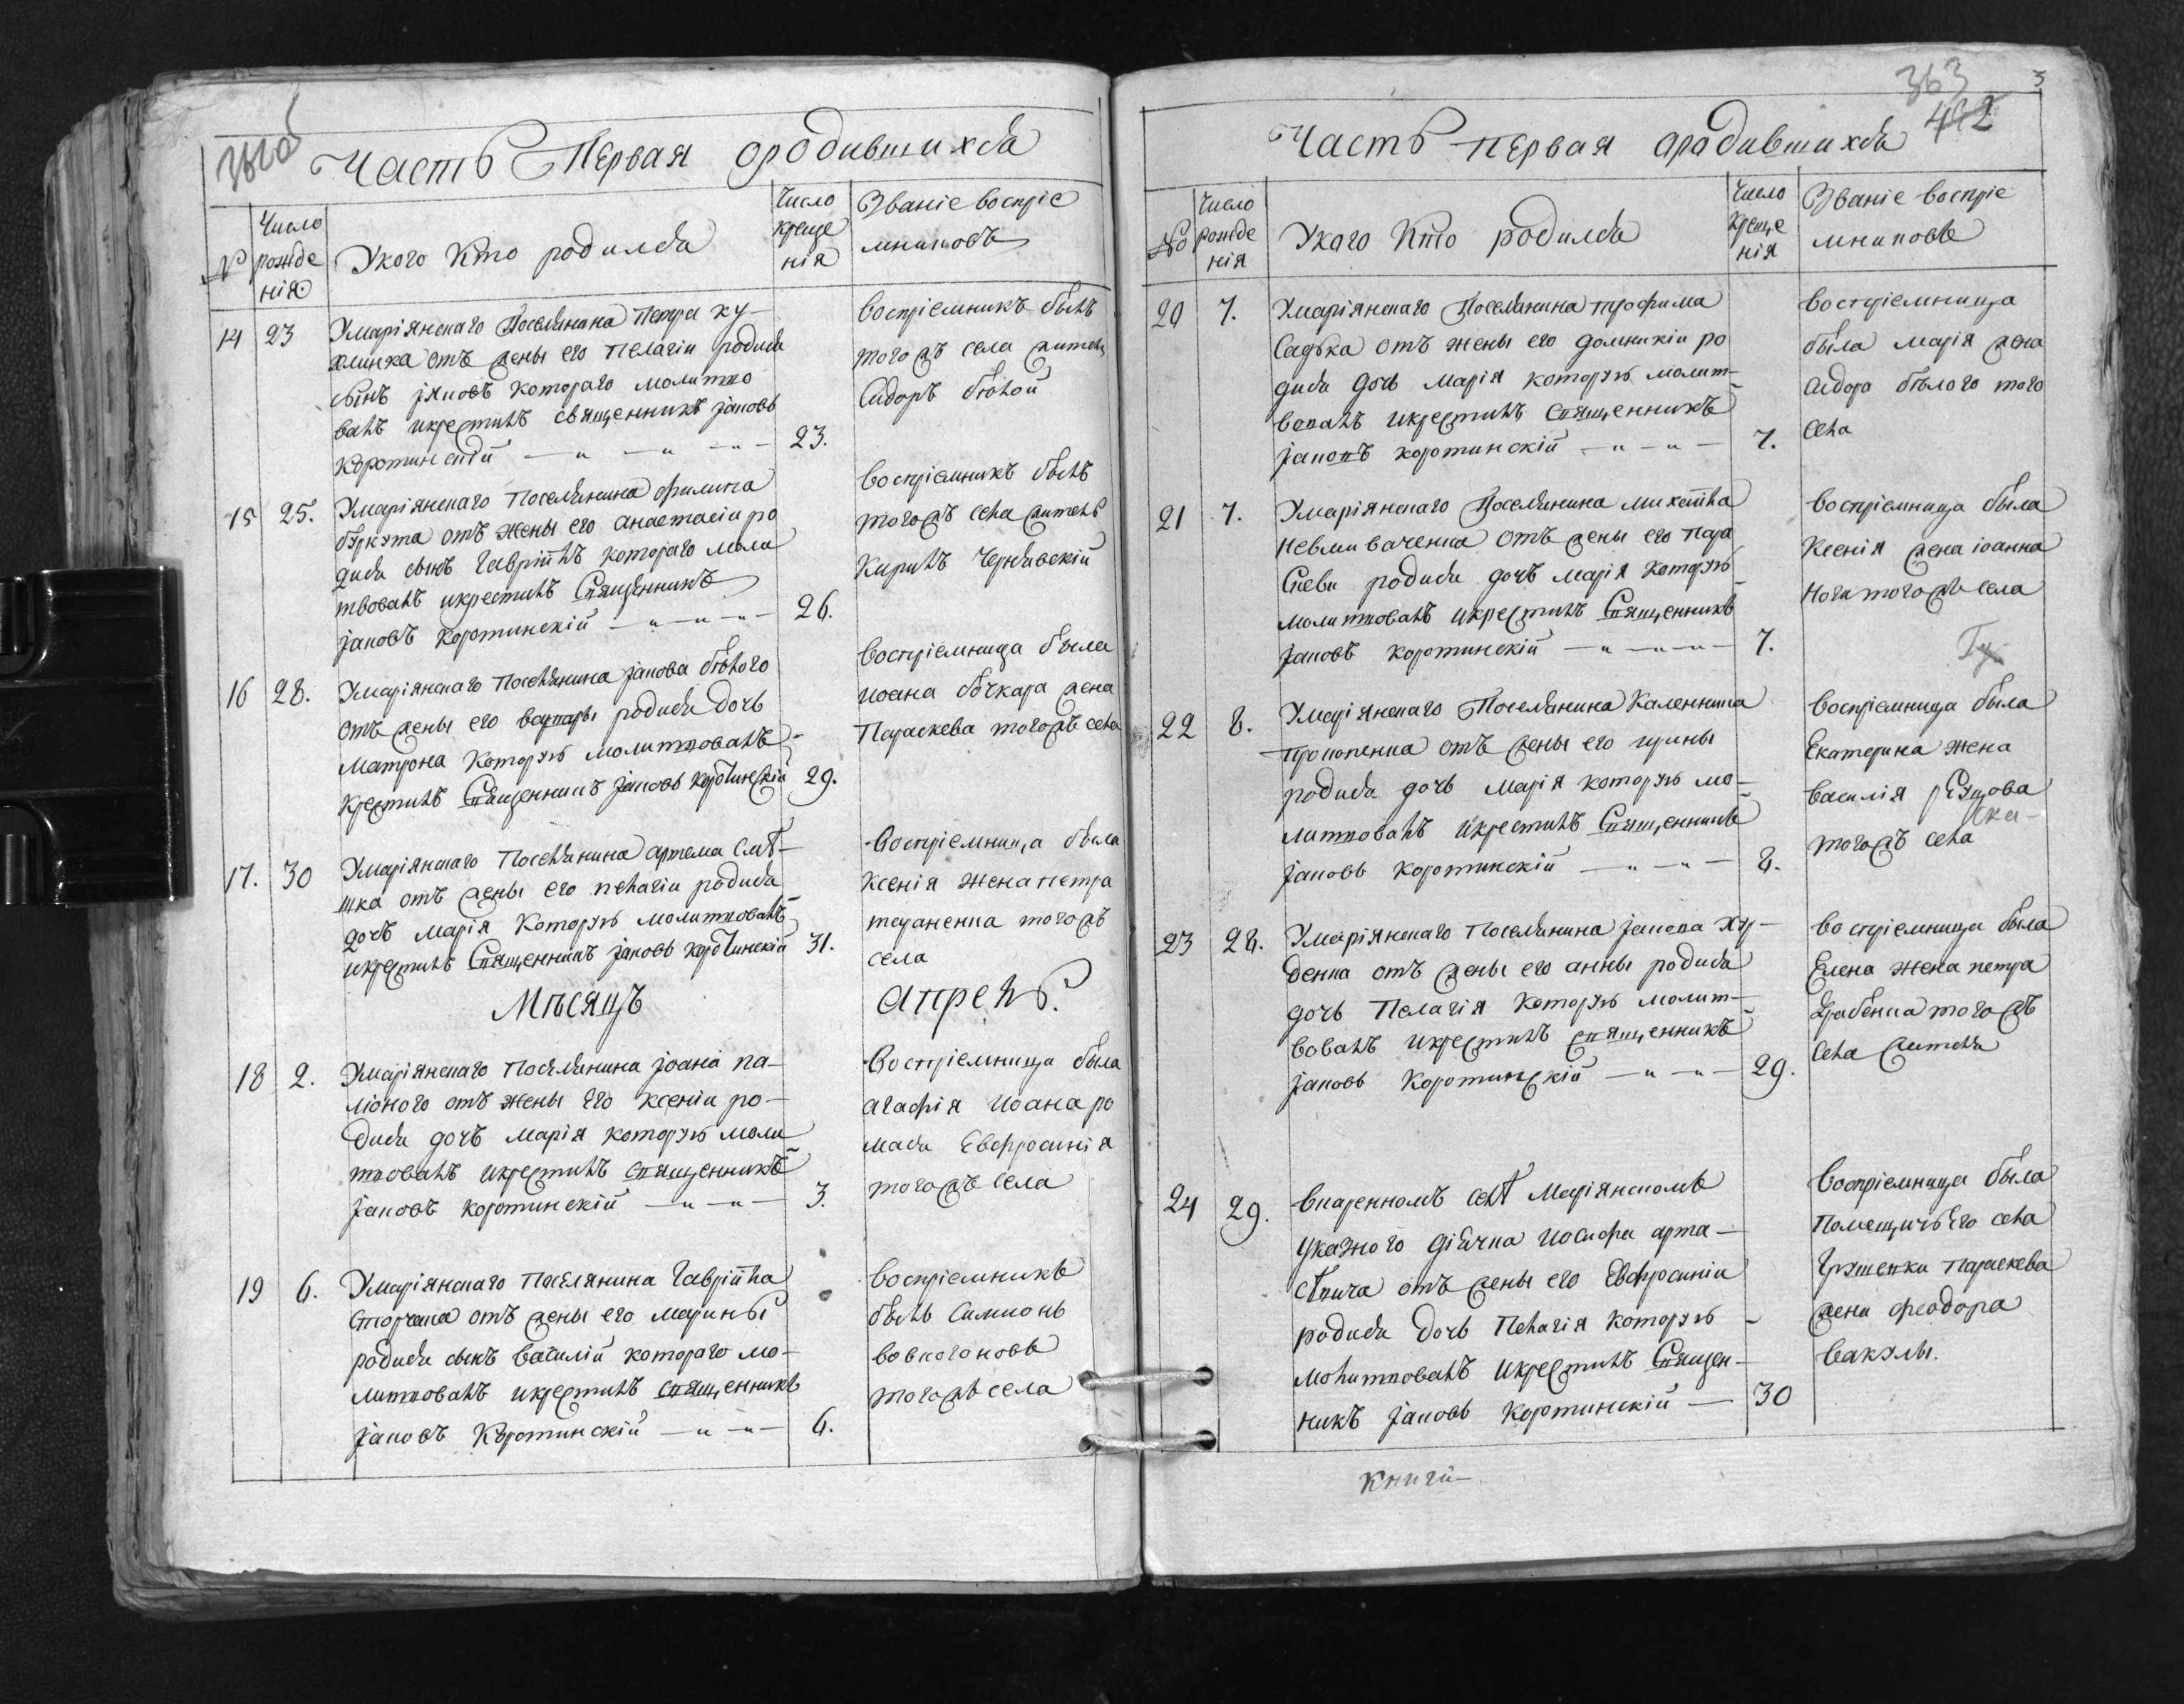 Часть Первая ородившихся
№
Число рожде нія
Укого Кто родился
Число креще нія
Званіе воспріе мниковъ
14 23
Умаріянскаго Поселянина Петра ху-
отъ жены его Пелагіи родился
сынъ Іяковъ котораго молитво
валъ икрестилъ священникъ Іаковъ
Коротинскій — „ — „ — „ — 23.
Воспріемникъ былъ
тогожъ села житель
Сидоръ бѣлой
15 25.
Умаріянскаго поселянина филипа
отъ жены его анастасіи ро
дился сынъ Гавріилъ котораго моли
твовалъ икрестилъ Священникъ
Іаковъ Коротинскій — „ — „ — „ — 26.
Воспріемникъ былъ
тогожъ села житель
Кирилъ Чернявскій
16 28.
Умаріянскаго поселянина Іакова бѣлого
отъ жены его варвары родися дочь
Матрона Которую молитвовалъ
Крестилъ Священникъ Іаковъ Коротинскій 29.
Воспріемница была
иоана бочкара жена
Параскева тогожъ села
17. 30
Умаріянскаго поселянина артема
отъ жены его пелагіи родися
дочь Марія Которую молитвовалъ
икрестилъ Священникъ Іаковъ Коротинскій 31.
Воспріемница была
Ксенія жена петра
тараненка тогожъ
села
Мѣсяцъ Апрель.
18 2.
Умаріянскаго поселянина Іоана па-
ліоного отъ жены его ксеніи ро-
дися дочь марія которую моли
твовалъ икрестилъ священникъ
Іаковъ коротинскій — „ — „ — 3.
Воспріемница была
агафія иоана ро
Евфросинія
тогожъ села
19 6.
Умаріянскаго поселянина Гавріила
отъ жены его марины
родися сынъ василій котораго мо-
литвовалъ икрестилъ священникъ
Іаковъ Коротинскій — „ — „ — 6.
Воспріемникъ
былъ Симионъ
вовкогоновъ
тогожъ села
363
3
442
Часть первая ародившихся
№
Число рожде нія
Укаго Кто родился
Число креще нія
Званіе воспріе мниковъ
20 7.
Умаріянскаго Поселянина трофима
Садька отъ жены его домникіи ро
дися дочь марія которую молит-
вовалъ икрестилъ священникъ
Іаковъ коротинскій — „ — „ — 7.
Воспріемница
была марія жена
сидора бѣлого того
села
21 7.
Умаріянскаго Поселянина михаила
невмиваченка отъ жены его пара
скеви родися дочь марія которую
молитвовалъ икрестилъ Священникъ
Іаковъ коротинскій — „ — „ — „ — 7.
Воспріемница была
Ксенія жена іоанна
Ноги тогожъ села
22 8.
Умаріянскаго Поселянина Каленника
Прокопенка отъ жены его
родися дочь марія которую мо-
литвовалъ икрестилъ Священникъ
Іаковъ коротинскій — „ — „ — 8.
Воспріемница была
Екатерина жена
василія
тогожъ села
23 28.
Умаріянскаго поселянина Іакова ху-
денка отъ жены его анны родися
дочь пелагія которую молит-
вовалъ икрестилъ священникъ
Іаковъ Коротинскій — „ — „ — 29.
Воспріемница была
Елена жена петра
тогожъ
села жителя
24 29.
Вказенномъ селѣ Маріянскомъ
Указного діячка иосифа арта-
сѣвича отъ жены его Евфросиніи
родися дочь Пелагія которую
молитвовалъ икрестилъ Священ-
никъ Іаковъ Коротинскій — 30
Воспріемница была
Помещичьего села
Грушевки параскева
жена феодора
вакулы.
Книги-